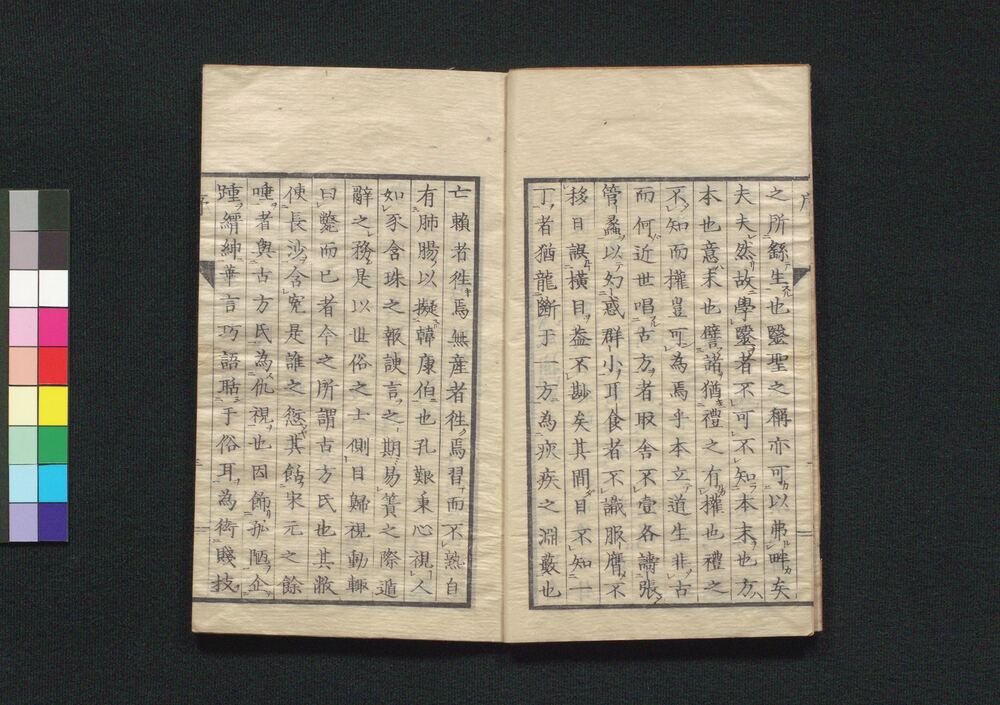 之所繇生也毉聖之稱亦可以弗畔矣
夫夫然故學毉者不可不知本末也方
本也意末也譬諸猶禮之有權也禮之
不知而權豈可為焉乎本立道生非古
而何近世唱古方者取舍不壹各譸張
管蠡以幻惑群小耳食者不識服膺不
移日誤橫目葢不尠矣其間目不知一
丁者猶龍斷于一方為疢疾之淵藪也
亡賴者徃焉無産者徃焉習而不熟自
有肺腸以擬韓康伯也孔艱秉心視人
如豕含珠之報諛言之期易簀之際遁
辭之務是以世俗之士側目歸視動輙
曰斃而已者今之所謂古方氏也其
使長沙含寃是誰之愆其餂宋元之餘
唾者與古方氏為仇視也因飾陋企
踵縉紳華言巧語聒于俗耳為衒賤技